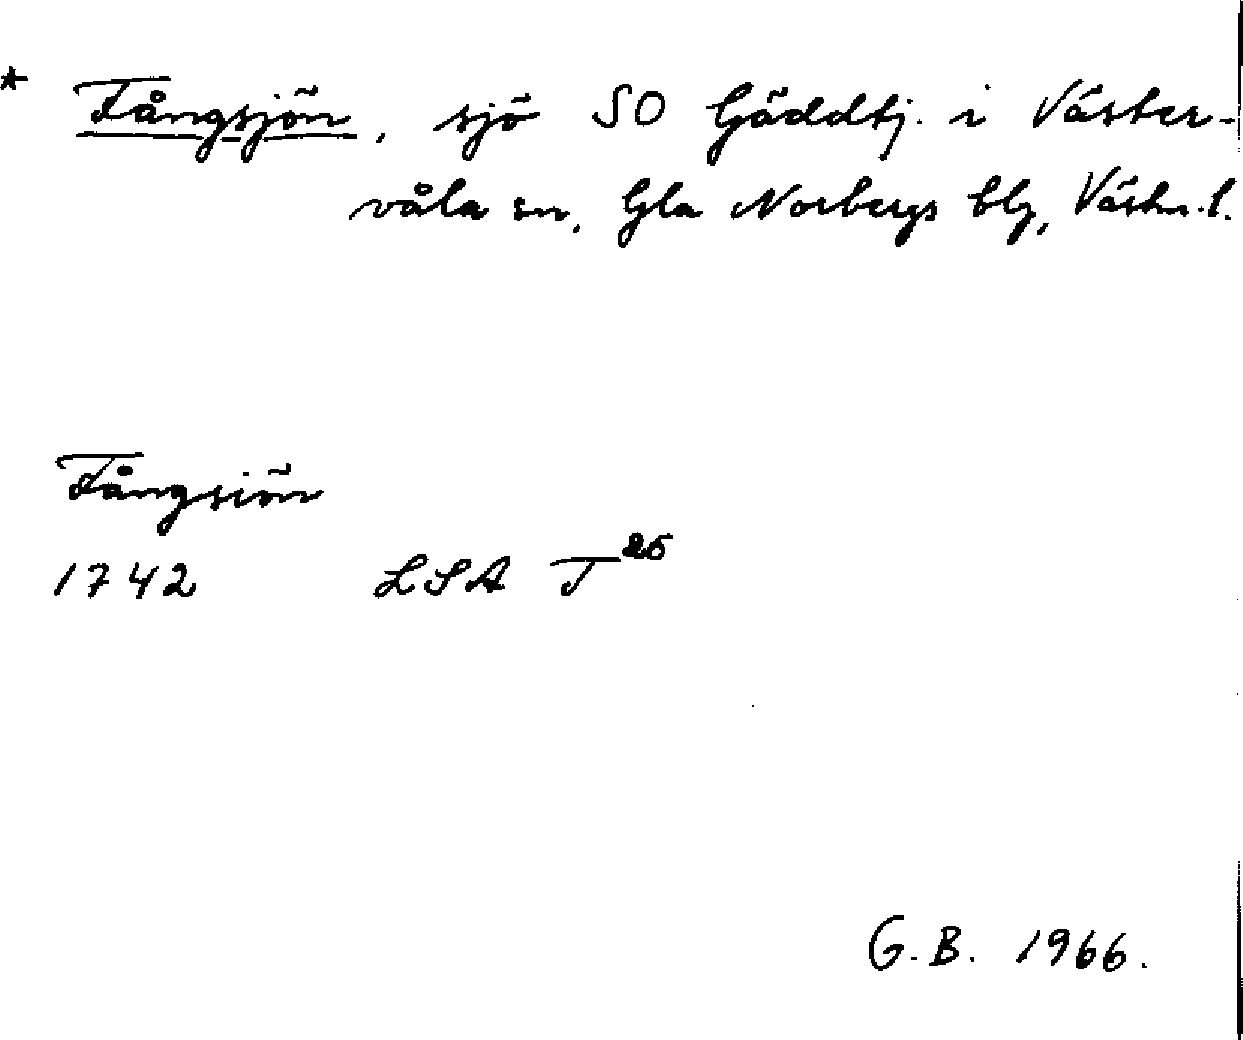 * Tångsjön, sjö SO Gäddtj. i Väster-
våla sn, Gla Norbergs blg, Västm. l.
Tångsiön
1742 LSA T25
G.B. 1966.